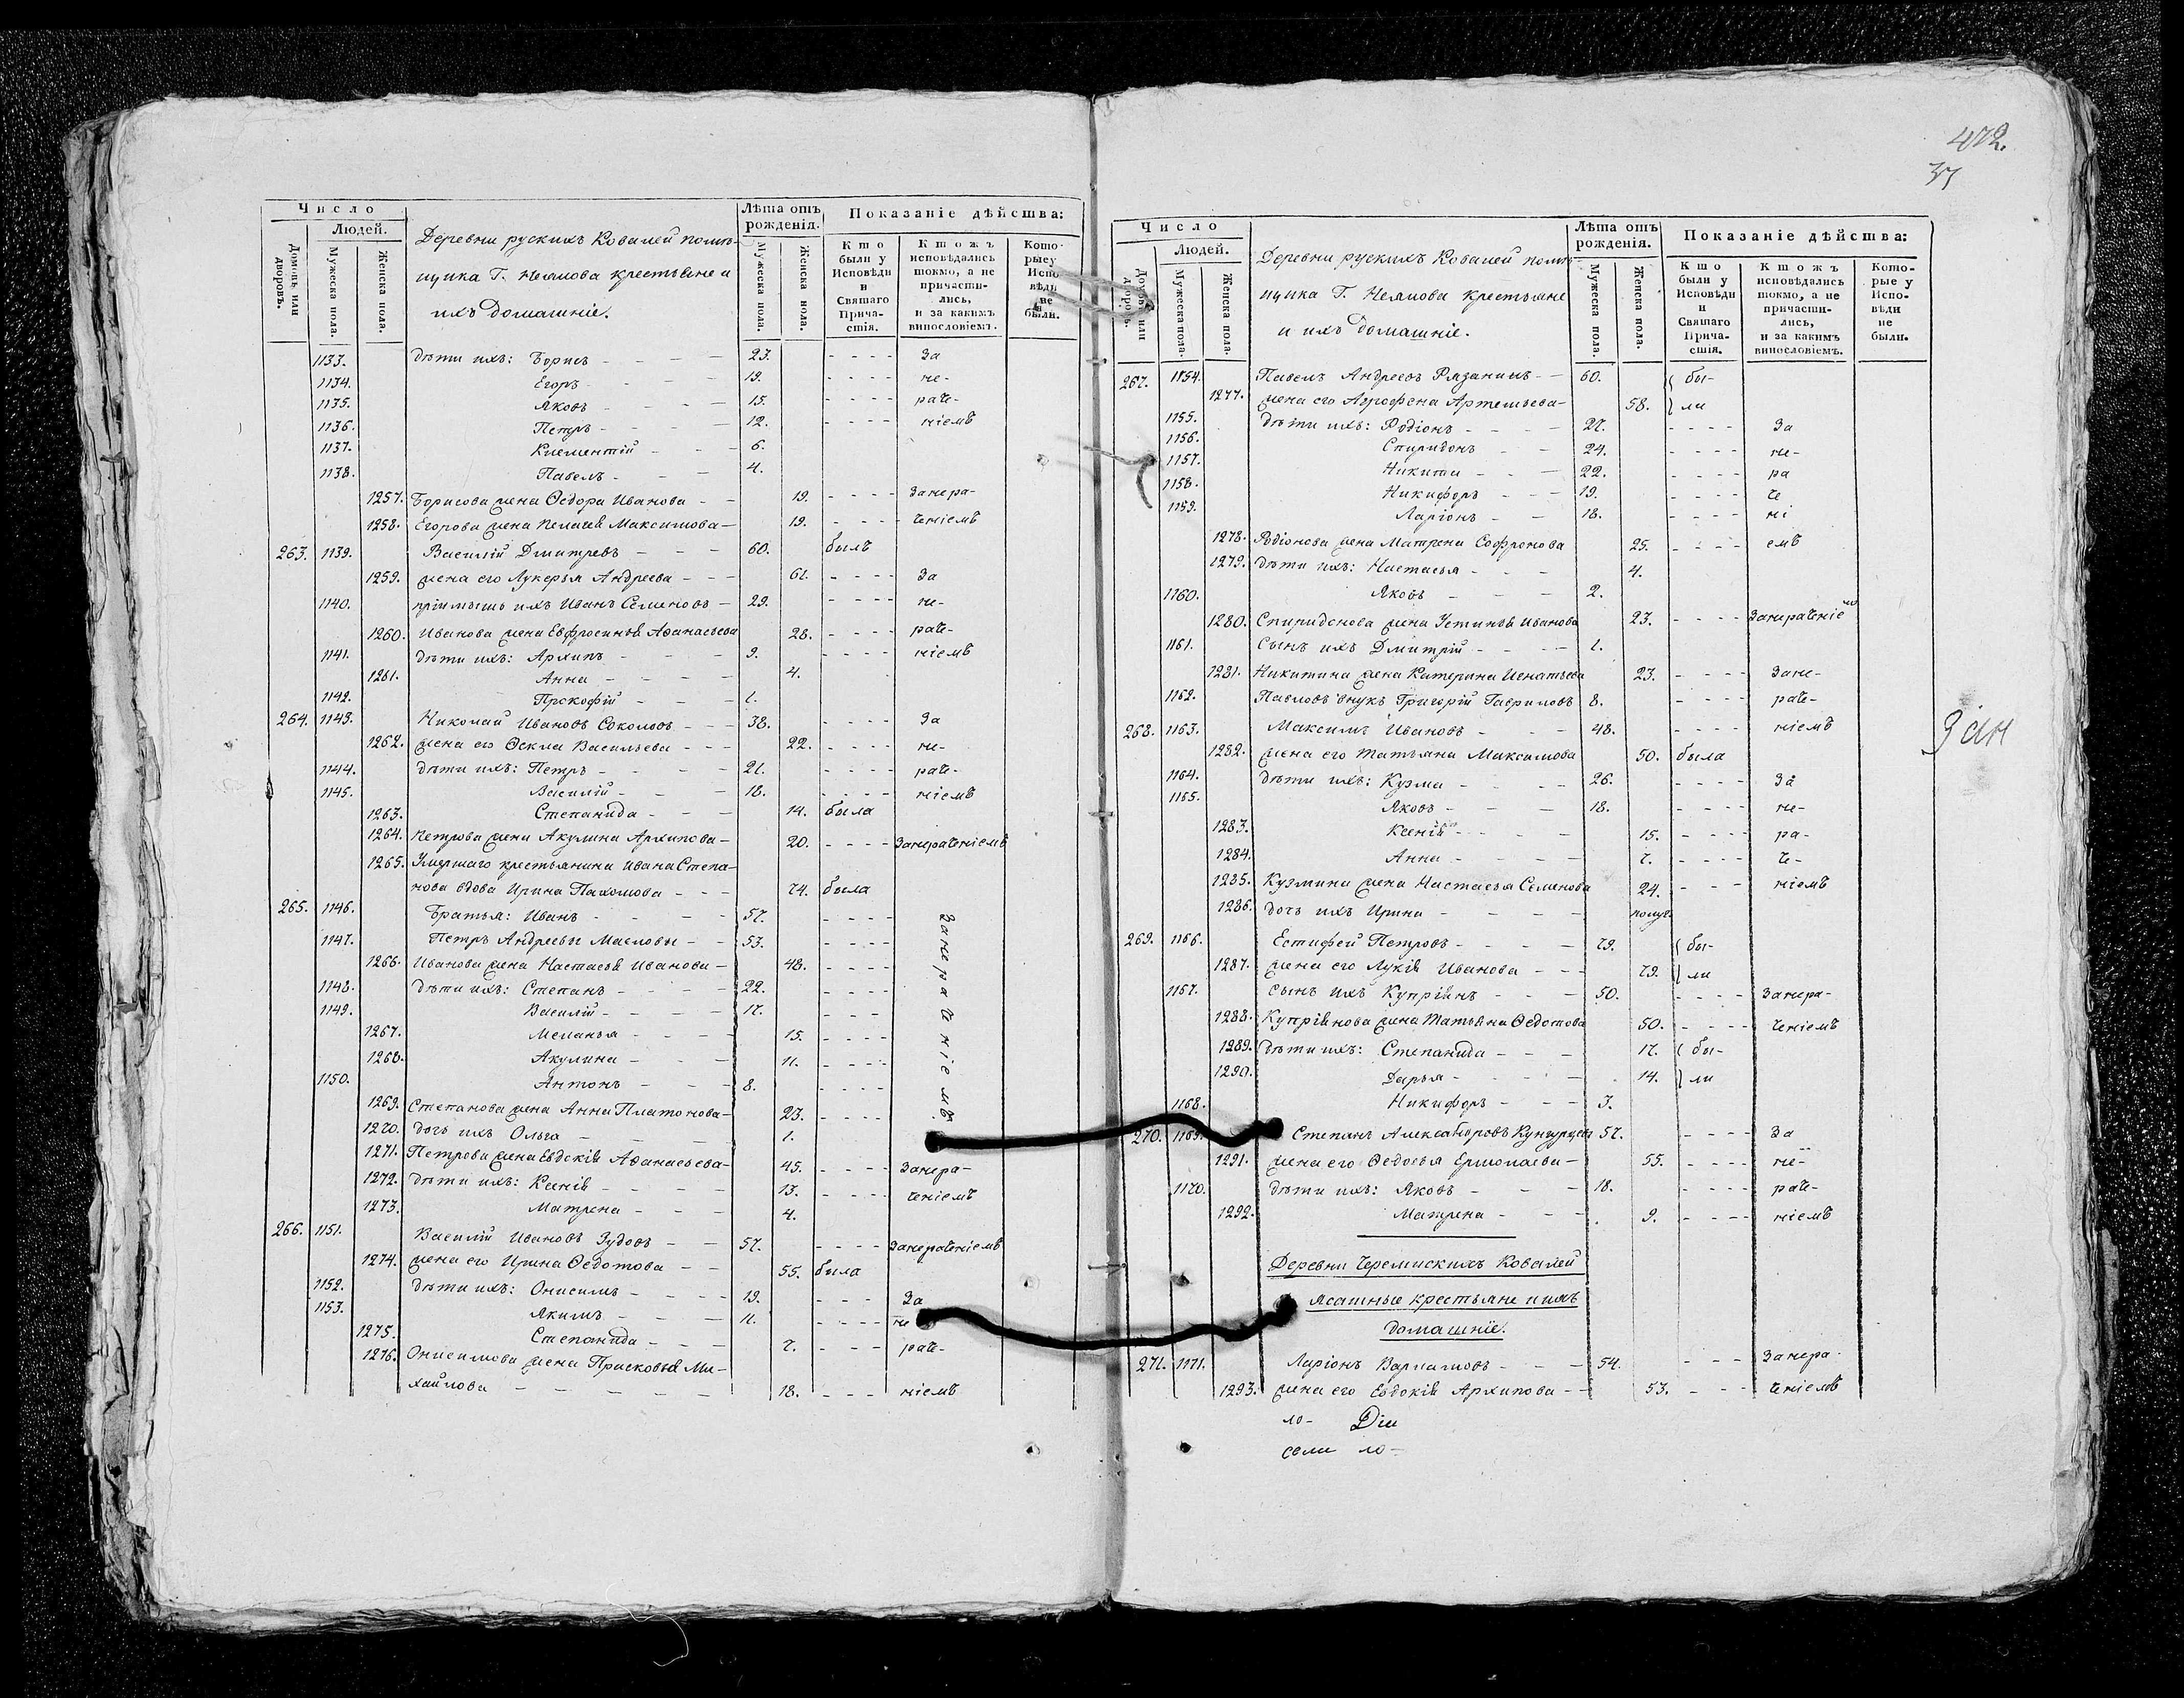 Число
Людей.
Домовъ или дворовъ.
Мужеска пола.
Женска пола.
Деревни рускихъ Ковалей помѣ-
щика Г. Неялова крестьяне и
ихъ домашніе.
Лѣта отъ рожденія.
Мужеска пола.
Женска пола.
Показаніе дѣйства:
Кто были у Исповѣди и Святаго Прича-стія.
Ктожъ исповѣдались токмо, а не причасти-лись, и за какимъ винословіемъ.
Кото-рые у Испо-вѣди не были.
1133. дѣти ихъ: Борисъ - - - 23. - - - - За
1134. Егоръ - - - 19. - - - - не-
1135. Яковъ - - - 15. - - - - раче-
1136. Петръ - - - 12. - - - - ніемъ
1137. Климентій - - - 6.
1138. Павелъ - - - 4.
1257. Борисова жена Ѳедора Иванова - - 19. - - - - Занера-
1258. Егорова жена Пелагея Максимова - 19. - - - - ченіемъ
263. 1139. Василій Дмитревъ - - - 60. былъ
1259. жена его Лукерья Андреева - - - 61. - - - - За
1140. пріимышъ ихъ Иванъ Семеновъ - 29. - - - - не-
1260. Иванова жена Евфросинья Аѳанасьева 28. - - - - раче-
1141. дѣти ихъ: Архипъ - - - 9. - - - - ніемъ
1261. Анна - - - 4.
1142. Прокофій - - - 1.
264. 1143. Николай Ивановъ Соколовъ - - - 38. - - - - За
1262. жена его Ѳекла Васильева - - - 22. - - - - не-
1144. дѣти ихъ: Петръ - - - 21. - - - - раче-
1145. Василій - - - 18. - - - - ніемъ
1263. Степанида - - - 14. была
1264. Петрова жена Акулина Архипова - 20. - - - - Занераченіемъ
1265. Умершаго крестьянина Ивана Степа-
нова вдова Ирина Пахомова - - - 74. была
265. 1146. Братья: Иванъ - - - 57. - - - - Занераченіемъ
1147. Петръ Андреевы Масловы - - 53. - - - -
1266. Иванова жена Настасья Иванова - 48. - - - -
1148. дѣти ихъ: Степанъ - - - 22. - - - -
1149. Василій - - - 17. - - -
1267. Меланья - - - 15. - - - -
1268. Акулина - - - 11. - - - -
1150. Антонъ - - - 8. - - - -
1269. Степанова жена Анна Платонова - 23. - - - -
1270. дочь ихъ Ольга - - - 1.
1271. Петрова жена Евдокія Аѳанасьева - 45. - - - - Занера-
1272. дѣти ихъ: Ксенія - - - 13. - - - - ченіемъ
1273. Матрена - - - 4.
266. 1151. Василій Ивановъ Зудовъ - - 57. - - - - Занераченіемъ
1274. жена его Ирина Ѳедотова - - 55. была
1152. дѣти ихъ: Онисимъ - - - 19. - - - За
1153. Якимъ - - - 11. - - - - не
1275. Степанида - - - 7. - - - раче-
1276. Онисимова жена Прасковья Ми-
хайлова - - - - 18. - - - ніемъ
472.
37
Число
Людей.
дворовъ.
Мужеска пола.
Женска пола.
Деревни рускихъ Ковалей помѣ-
щика Г. Неялова крестьяне
и ихъ домашніе.
Лѣта отъ рожденія.
Мужеска пола.
Женска пола.
Показаніе дѣйства:
Кто были у Исповѣди и Святаго Прича-стія.
Ктожъ исповѣдались токмо, а не причасти-лись, и за какимъ винословіемъ.
Кото-рые у Испо-вѣди не были.
267. 1154. Павелъ Андреевъ Рязанинъ - - 60. бы-
1277. жена его Агрофена Артемьева - 58. ли
1155. дѣти ихъ: Родіонъ - - - 27. - - - - За
1156. Спиридонъ - - 24. - - - - не-
1157. Никита - - - 22. - - - - ра
1158. Никифоръ - - - 19. - - - - че
1159. Ларіонъ - - 18. - - - - ні
1278. Родіонова жена Матрена Софронова 25. - - - - емъ
1279. дѣти ихъ: Настасья - - - 4.
1160. Яковъ - - - 2.
1280. Спиридонова жена Устинья Иванова 23. - - - - Занераченіемъ
1161. Сынъ ихъ Дмитрій - - - 1.
1281. Никитина жена Катерина Игнатьева 23. - - - - Зане-
1162. Павловъ внукъ Григорій Гавриловъ 8. - - - - раче-
268. 1163. Максимъ Ивановъ - - - 48. - - - - ніемъ
1282. жена его Татьяна Максимова 50. была
1164. дѣти ихъ: Кузма - - - 26. - - - - За
1165. Яковъ - - - 18. - - - - не-
1283. Ксенія - - - 15. - - - - ра-
1284. Анна - - - 7. - - - - че-
1285. Кузмина жена Настасья Семенова 24. - - - ніемъ
1286. дочь ихъ Ирина - - - полуг.
269. 1166. Естифей Петровъ - - - 79. бы-
1287. жена его Лукія Иванова - - - 79. ли
1167. сынъ ихъ Купріянъ - - - 50. - - - - Занера-
1288. Купріянова жена Татьяна Ѳедотова 50. - - - - ченіемъ
1289. Дѣти ихъ: Степанида - - - 17. бы-
1290. Дарья - - - 14. ли
1168. Никифоръ - - - 3.
270. 1169. Степанъ Александровъ Кунгурцевъ 57. - - - - За
1291. жена его Ѳедосья Ермолаева - 55. - - - - не-
1170. дѣти ихъ: Яковъ - - - 18. - - - - раче-
1292. Матрена - - - 9. - - - - ніемъ
Деревни Черемискихъ Ковалей
ясашные крестьяне и ихъ
домашніе.
271. 1171. Ларіонъ Варламовъ - - - 54. - - - Занера-
1293. жена его Евдокія Архипова - - 53. - - - ченіемъ